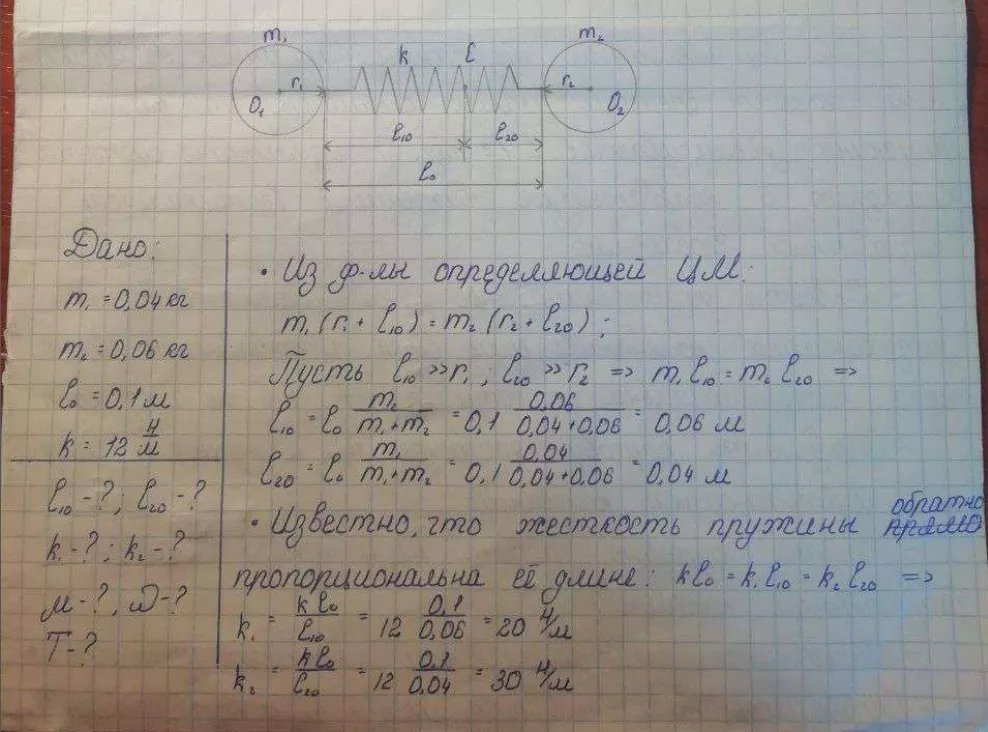 m₁ m₂
k C
r₁ r₂
O₁ O₂
l₁₀ l₂₀
l₀
Дано:
m₁ = 0,04 кг
m₂ = 0,06 кг
l₀ = 0,1 м
k = 12 Н/м
l₁₀ - ?; l₂₀ - ?
k₁ - ?; k₂ - ?
T - ?
• Из ф-лы определяющей ЦМ:
m₁(r₁ + l₁₀) = m₂(r₂ + l₂₀);
Пусть l₁₀ >> r₁; l₂₀ >> r₂ => m₁l₁₀ = m₂l₂₀ =>
l₁₀ = l₀ m₂/(m₁+m₂) = 0,1 0,06/(0,04+0,06) = 0,06 м
l₂₀ = l₀ m₁/(m₁+m₂) = 0,1 0,04/(0,04+0,06) = 0,04 м
обратно
• Известно, что жесткость пружины прямо
пропорциональна её длине: kl₀ = k₁l₁₀ = k₂l₂₀ =>
k₁ = kl₀/l₁₀ = 12 0,1/0,06 = 20 Н/м
k₂ = kl₀/l₂₀ = 12 0,1/0,04 = 30 Н/м